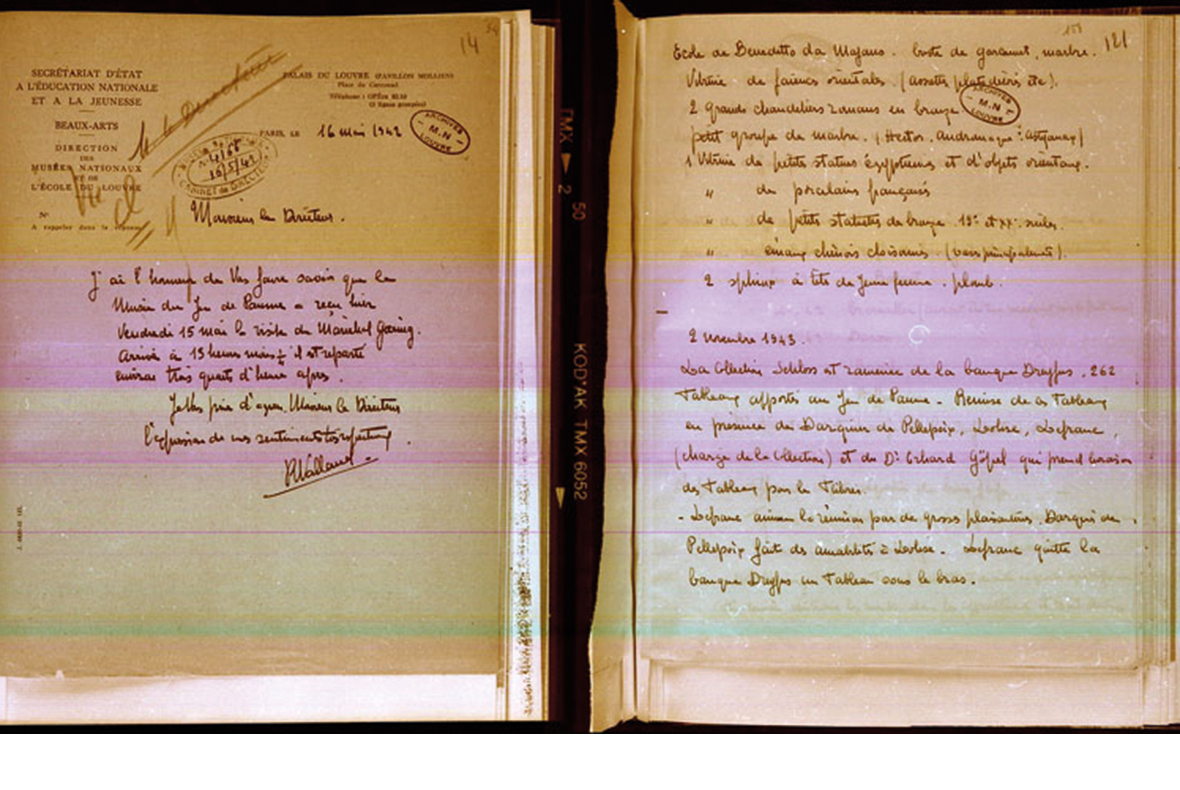 14
SECRÉTARIAT D'ÉTAT
A L'ÉDUCATION NATIONALE
ET A LA JEUNESSE
BEAUX-ARTS
DIRECTION
DES
MUSÉES NATIONAUX
ET DE
L'ÉCOLE DU LOUVRE
N°
A rappeler dans la réponse
PALAIS DU LOUVRE (PAVILLON MOLLIEN)
Place du Carrousel
Téléphone : OPÉra
(3 lignes groupées)
PARIS, LE 16 mai 1942
ARCHIVES
M.N
LOUVRE
16/5/42
CABINET du DIRECTEUR
Monsieur le Directeur.
J'ai l'honneur de Vous faire savoir que le
Musée du Jeu de Paume a reçu hier
Vendredi 15 mai la visite du Maréchal Göring.
Arrivé à 15 heures moins il est reparti
environ trois quarts d'heure après.
Je Vous prie d'agréer, Monsieur le Directeur
l'expression de mes sentiments très respectueux.
RValland
TMX 2 50 KODAK TMX 6052
121
Ecole de Benedetto da Majano. buste de garçonnet, marbre.
Vitrine de faïences orientales. (assiettes, plats décorés etc).
ARCHIVES
M.N
LOUVRE
2 grands chandeliers romans en bronze
petit groupe de marbre. (Hector. Andromaque. Astyanax)
1 Vitrine de petites statues égyptiennes et d'objets orientaux.
" de porcelaines françaises
" de petites statuettes de bronze. 19e et XXe siècles.
" émaux chinois cloisonnés. (vases principalement).
2 sphinx à tête de jeune femme. plomb.
2 novembre 1943.
La Collection Schloss est ramenée de la banque Dreyfus. 262
Tableaux apportés au Jeu de Paume. Remise de ces Tableaux
en présence de Darquier de Pellepoix, Lohse, Lefranc,
(chargé de la Collection) et du Dr Erhard Göpel qui prend livraison
des Tableaux pour le Führer.
- Lefranc anime la réunion par de grosses plaisanteries. Darquier de
Pellepoix fait des amabilités à Lohse. Lefranc quitte la
banque Dreyfus un Tableau sous le bras.